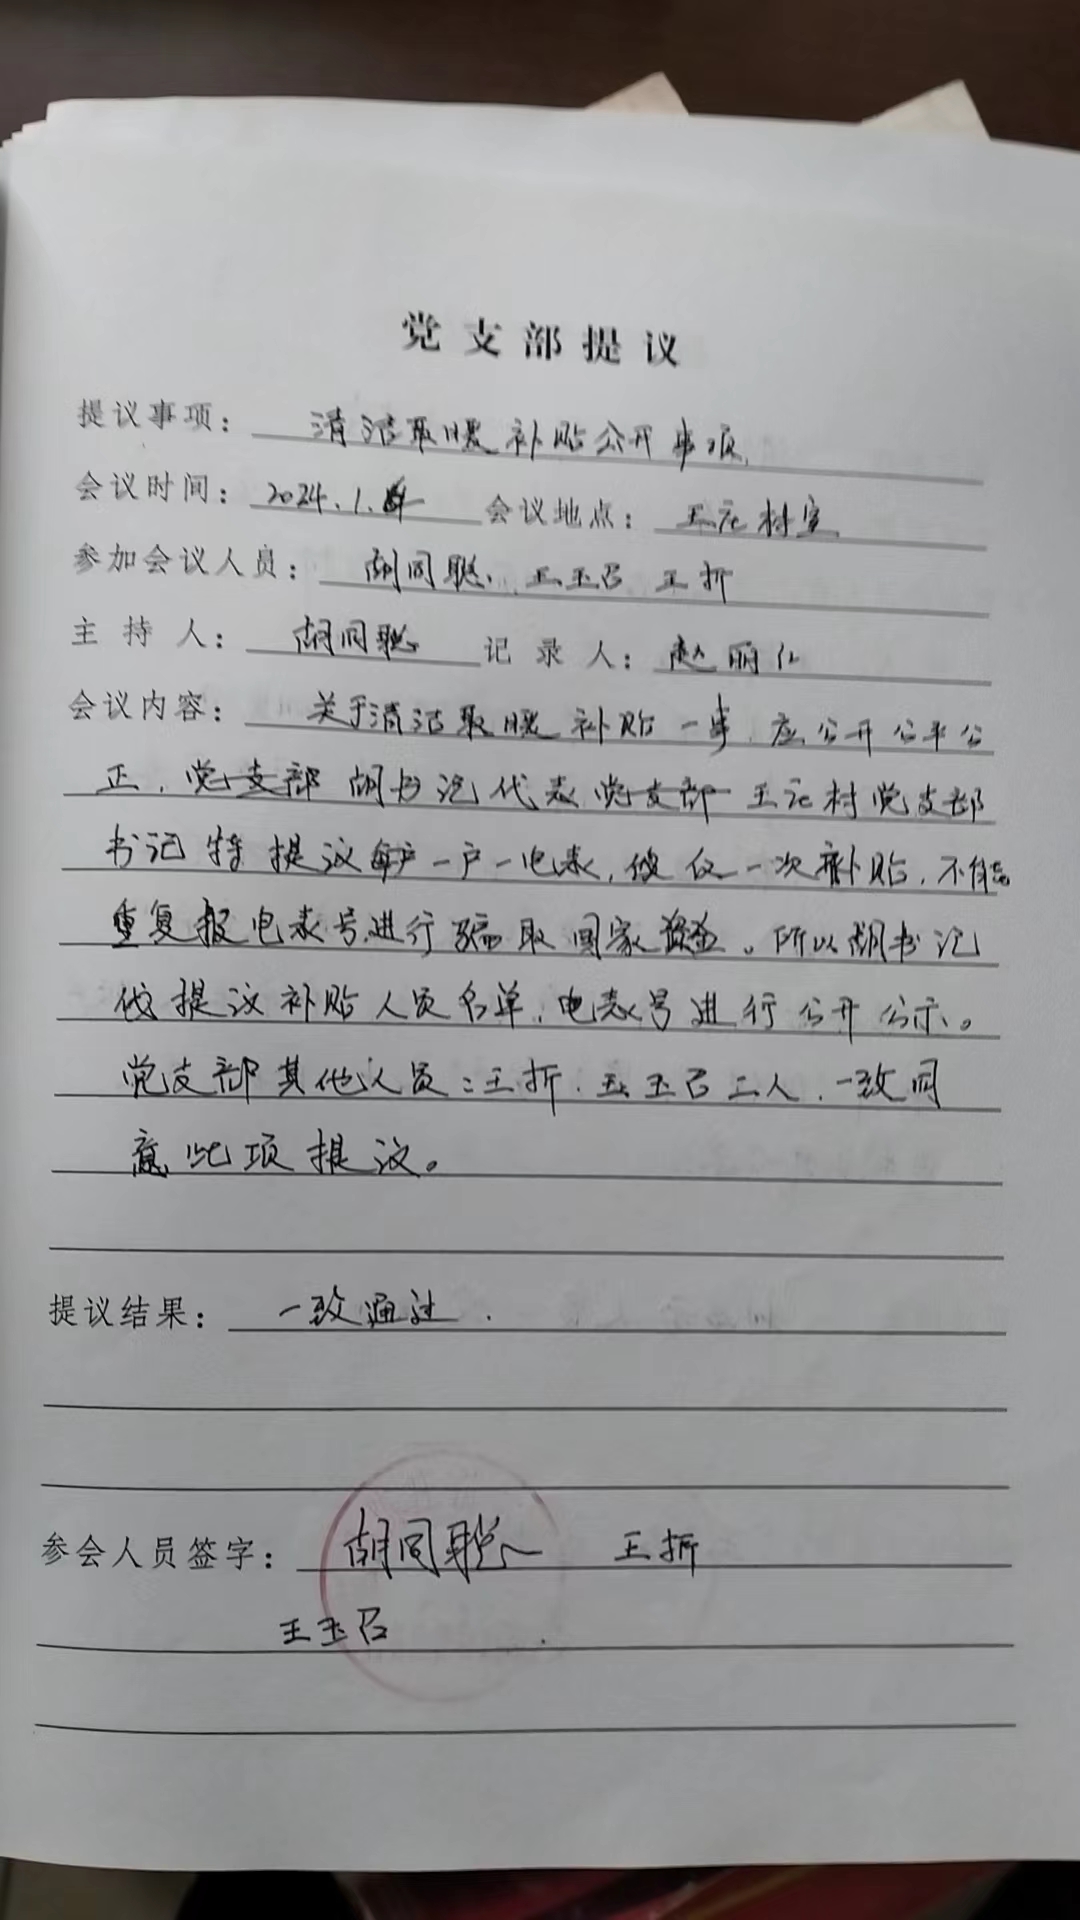 党支部提议
提议事项： 清洁取暖补贴公开事项.
会议时间： 2024.1. 会议地点： 王庄村室
参加会议人员： 胡同聪、王玉召 王折
主持人： 胡同聪 记录人： 赵丽
会议内容： 关于清洁取暖补贴一事，应公开公平公
正，党支部胡书记代表党支部王庄村党支部
书记特提议每户一户一电表，仅一次补贴，不能
重复报电表号进行骗取国家资金。所以胡书记
提议补贴人员名单，电表号进行公开公示。
党支部其他人员：王折、王玉召二人，一致同
意此项提议。
提议结果： 一致通过.
参会人员签字： 胡同聪 王折
王玉召